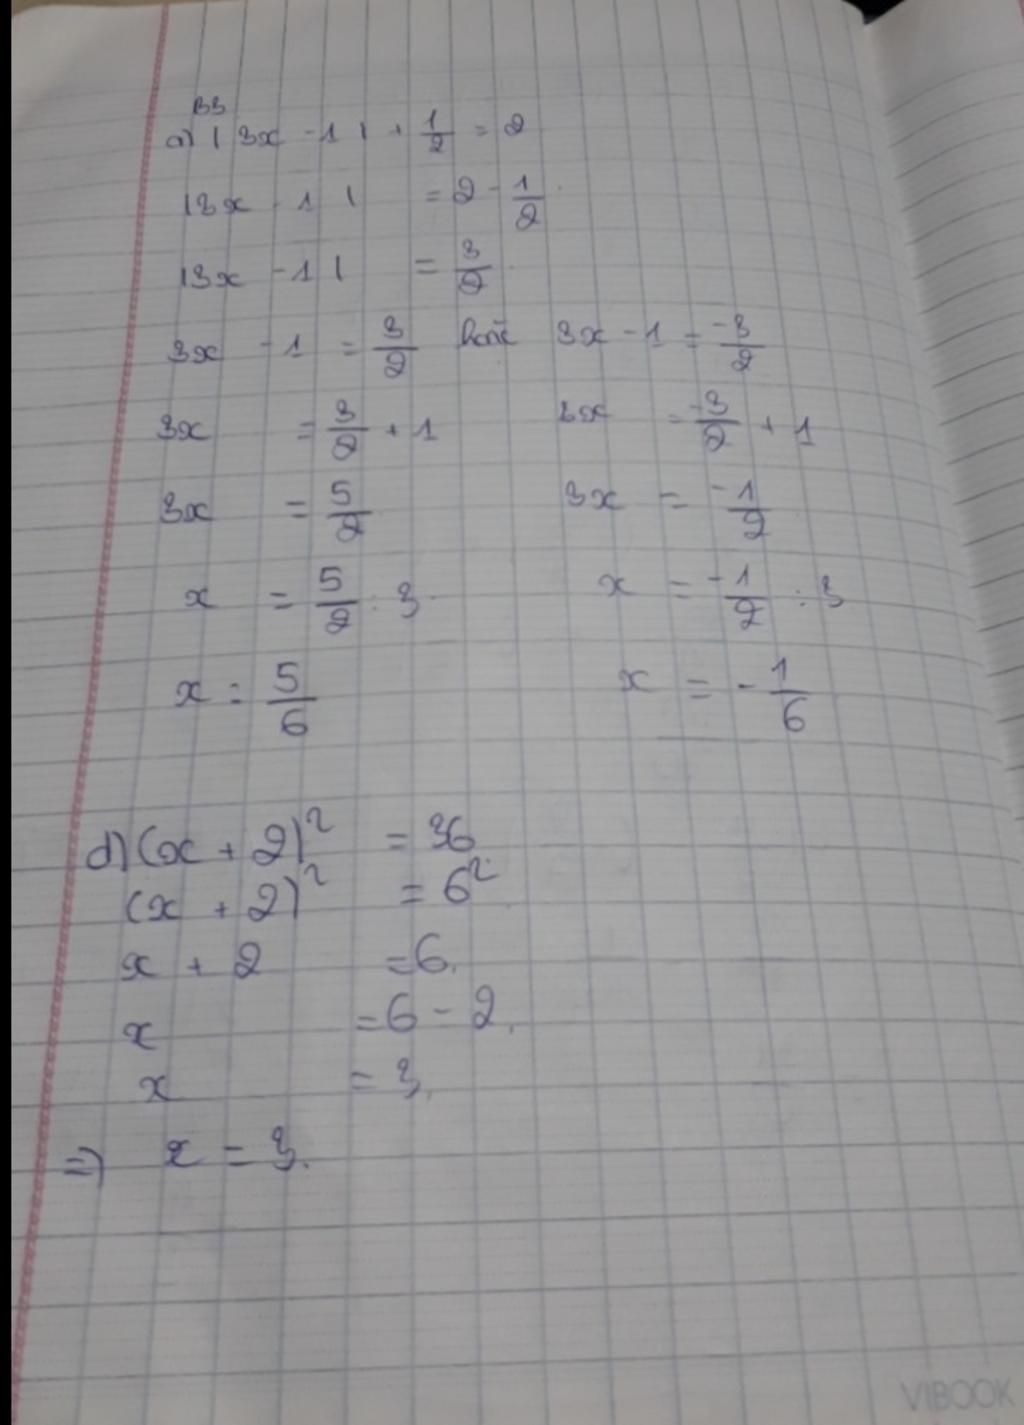 B3
a) | 3x - 1 | + 1/2 = 2
|3x - 1 | = 2 - 1/2
|3x - 1 | = 3/2
3x - 1 = 3/2 hoặc 3x - 1 = -3/2
3x = 3/2 + 1 3x = -3/2 + 1
3x = 5/2 3x = -1/2
x = 5/2 : 3 x = -1/2 : 3
x = 5/6 x = -1/6
d) (x + 2)² = 36
(x + 2)² = 6²
x + 2 = 6.
x = 6 - 2.
x = 3.
=> x = 3.
VIBOOK